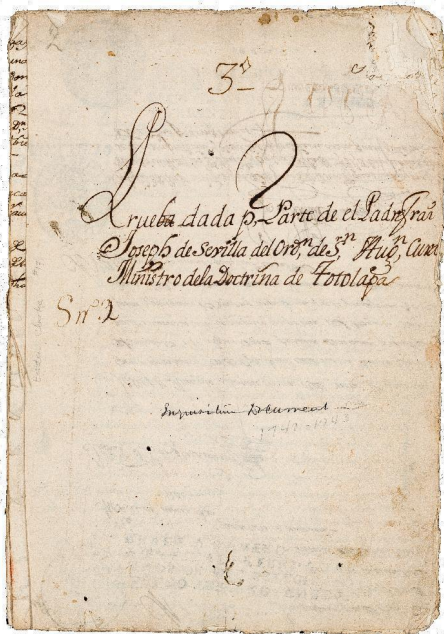 3º
Prueba dada pr. Parte de el Padre Frai
Joseph de Sevilla del Ordn. de Sn. Augn. Cura
Ministro de la Doctrina de Totolapa
Sn. 2
Inquisition Document
1741-1743